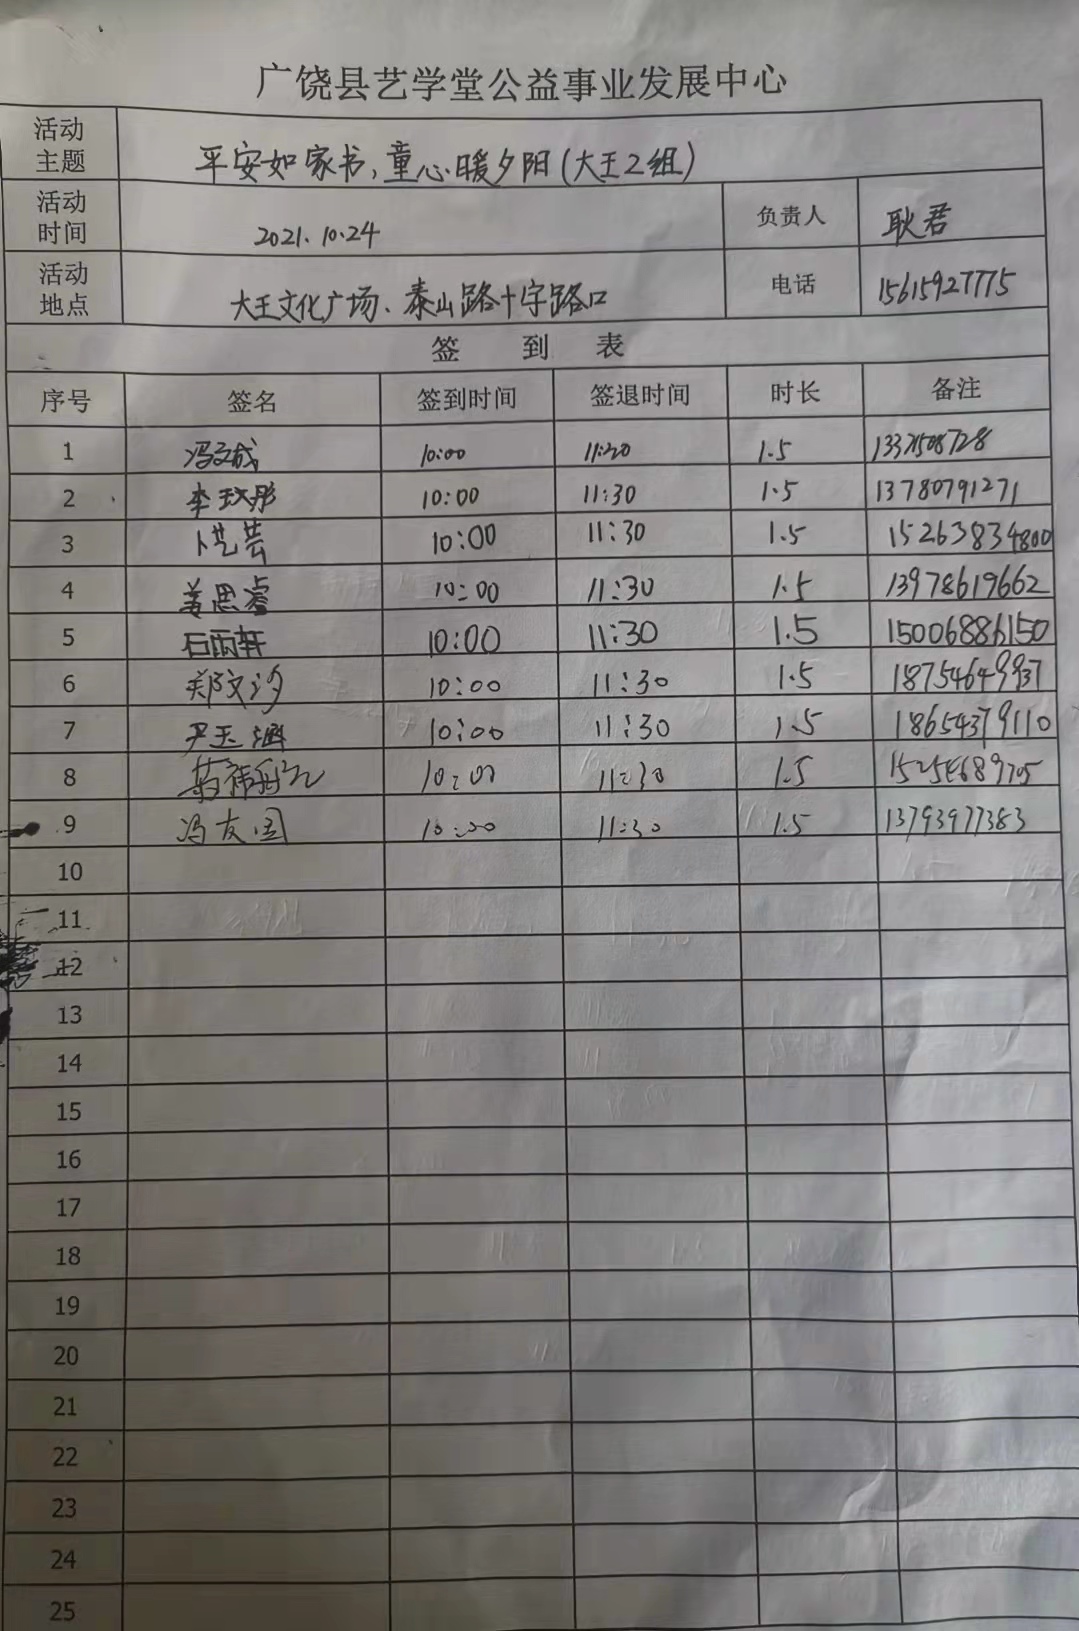 广饶县艺学堂公益事业发展中心
活动主题 平安如家书,童心暖夕阳(大王2组)
活动时间 2021.10.24 负责人 耿君
活动地点 大王文化广场、泰山路十字路口 电话 15615927775
签到表
序号 签名 签到时间 签退时间 时长 备注
1 冯文成 10:00 11:30 1.5
2 李玟彤 10:00 11:30 1.5 13780791271
3 卜艺芸 10:00 11:30 1.5 15263834800
4 姜思睿 10:00 11:30 1.5 13978619662
5 石雨轩 10:00 11:30 1.5 15006886150
6 郑文汐 10:00 11:30 1.5 18754649937
7 尹玉涵 10:00 11:30 1.5 18654379110
8 10:00 11:30 1.5 15254689705
9 冯友国 10:00 11:30 1.5 13793977383
10
11
12
13
14
15
16
17
18
19
20
21
22
23
24
25